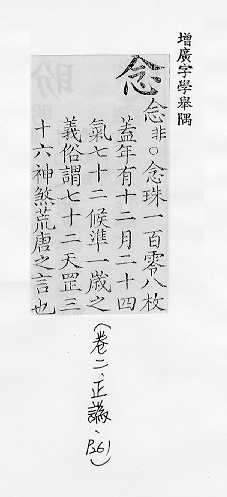 增廣字學舉隅
念念非○念珠一百零八枚
蓋年有十二月二十四
氣七十二候準一歲之
義俗謂七十二天罡三
十六神煞荒唐之言也
(卷二、正譌、P261)